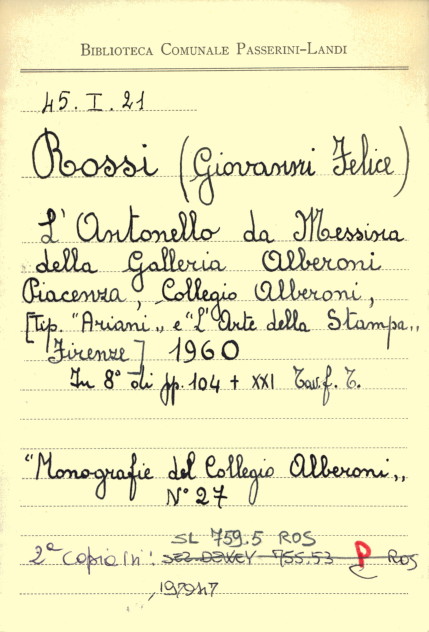 BIBLIOTECA COMUNALE PASSERINI-LANDI
45. I. 21
Rossi (Giovanni Felice)
L'Antonello da Messina
della Galleria Alberoni
Piacenza, Collegio Alberoni,
[Tip. "Ariani„ e "L'Arte della Stampa„
Firenze] 1960
In 8° di pp. 104 + XXI Tav. f. T.
"Monografie del Collegio Alberoni„
N° 27
SL 759.5 ROS
2ª copia in: SEZ. DEWEY 755.53 P ROS